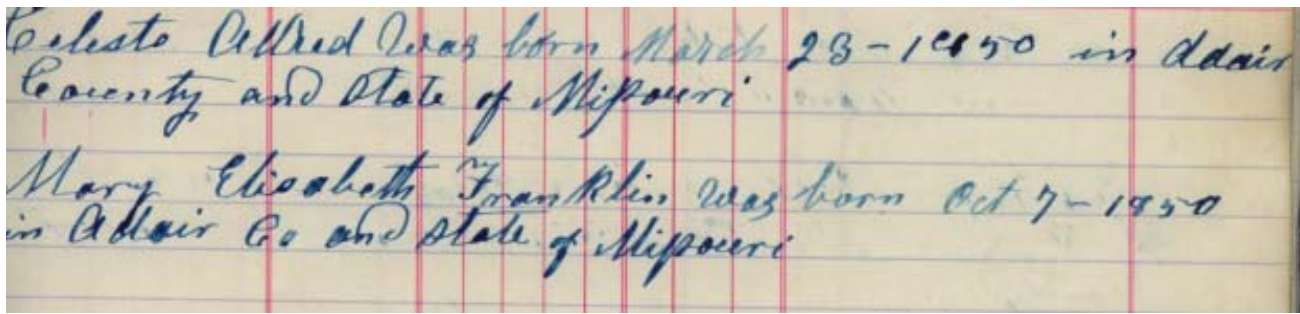 Celesta Allred was born March 23-1850 in Adair
County and State of Missouri
Mary Elisabeth Franklin was born Oct 7-1850
in Adair Co and State of Missouri